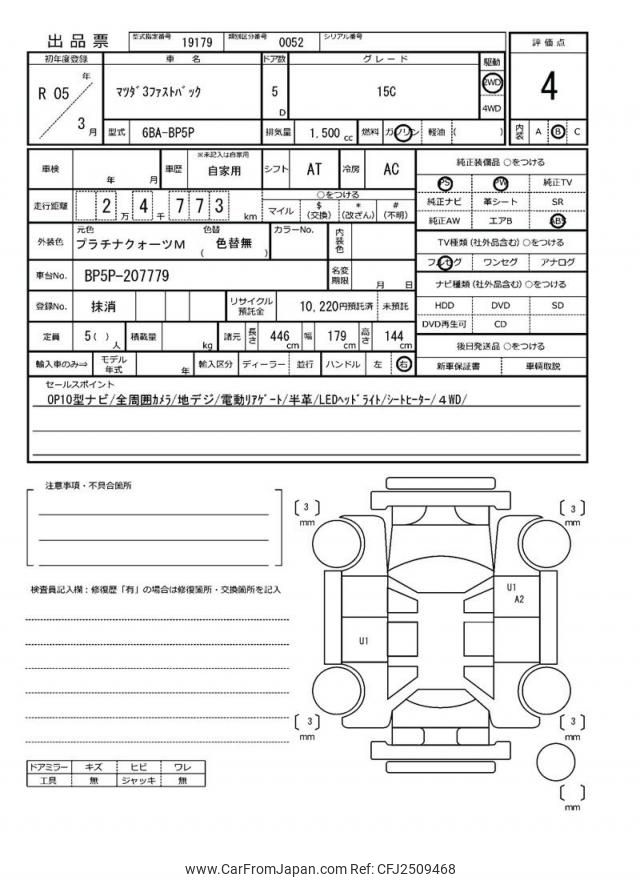 出品票
型式指定番号 19179 類別区分番号 0052 シリアル番号
初年度登録 車 名 ドア数 グレード 駆動 評価点
R 05 年 3 月 ﾏﾂﾀﾞ3ﾌｧｽﾄﾊﾞｯｸ 5 D 15C 2WD 4WD 4
型式 6BA-BP5P 排気量 1,500 cc 燃料 ガソリン 軽油 ( ) 内装 A B C
車検 年 月 車歴 ※未記入は自家用 自家用 シフト AT 冷房 AC 純正装備品 ○をつける
PS PW 純正TV
走行距離 2 万 4 千 7 7 3 km ○をつける
マイル $ (交換) * (改ざん) # (不明)
純正ナビ 革シート SR
純正AW エアB ABS
外装色 元色 プラチナクォーツM 色替 ( 色替無 ) カラーNo. 内装色
TV種類 (社外品含む) ○をつける
フルセグ ワンセグ アナログ
車台No. BP5P-207779 名変期限 月 日
ナビ種類 (社外品含む) ○をつける
登録No. 抹消 リサイクル預託金 10,220円預託済 未預託
HDD DVD SD
DVD再生可 CD
定員 5 ( ) 人 積載量 kg 諸元 長さ 446 cm 幅 179 cm 高さ 144 cm
後日発送品 ○をつける
輸入車のみ⇒ モデル年式 年 輸入区分 ディーラー 並行 ハンドル 左 右
新車保証書 車輌取説
セールスポイント
OP10型ナビ/全周囲ｶﾒﾗ/地デジ/電動ﾘｱｹﾞｰﾄ/半革/LEDﾍｯﾄﾞﾗｲﾄ/ｼｰﾄﾋｰﾀｰ/４WD/
注意事項・不具合箇所
検査員記入欄：修復歴「有」の場合は修復箇所・交換箇所を記入
[ 3 ] mm
[ 3 ] mm
U1
A2
U1
[ 3 ] mm
[ 3 ] mm
[ ] mm
ドアミラー キズ ヒビ ワレ
工具 無 ジャッキ 無
www.CarFromJapan.com Ref: CFJ2509468